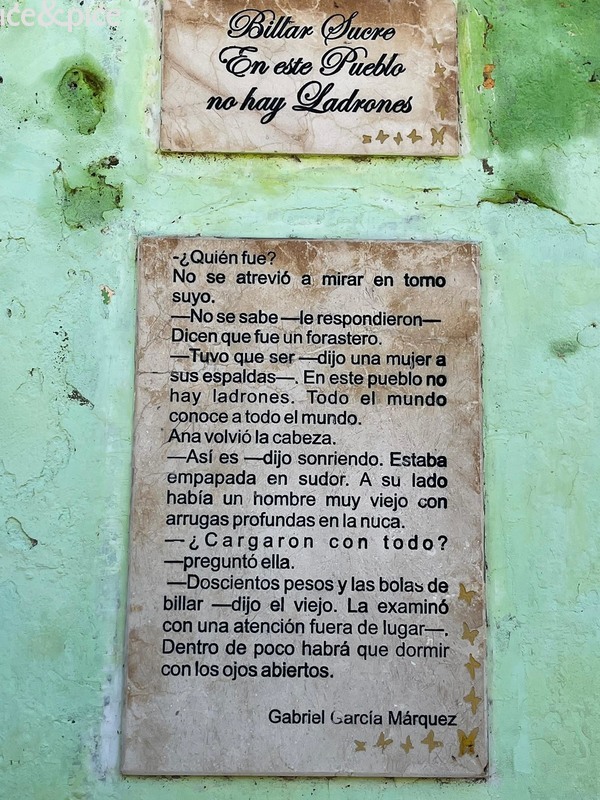 Billar Sucre
En este Pueblo
no hay Ladrones
-¿Quién fue?
No se atrevió a mirar en torno
suyo.
—No se sabe —le respondieron—
Dicen que fue un forastero.
—Tuvo que ser —dijo una mujer a
sus espaldas—. En este pueblo no
hay ladrones. Todo el mundo
conoce a todo el mundo.
Ana volvió la cabeza.
—Así es —dijo sonriendo. Estaba
empapada en sudor. A su lado
había un hombre muy viejo con
arrugas profundas en la nuca.
—¿Cargaron con todo?
—preguntó ella.
—Doscientos pesos y las bolas de
billar —dijo el viejo. La examinó
con una atención fuera de lugar—.
Dentro de poco habrá que dormir
con los ojos abiertos.
Gabriel García Márquez